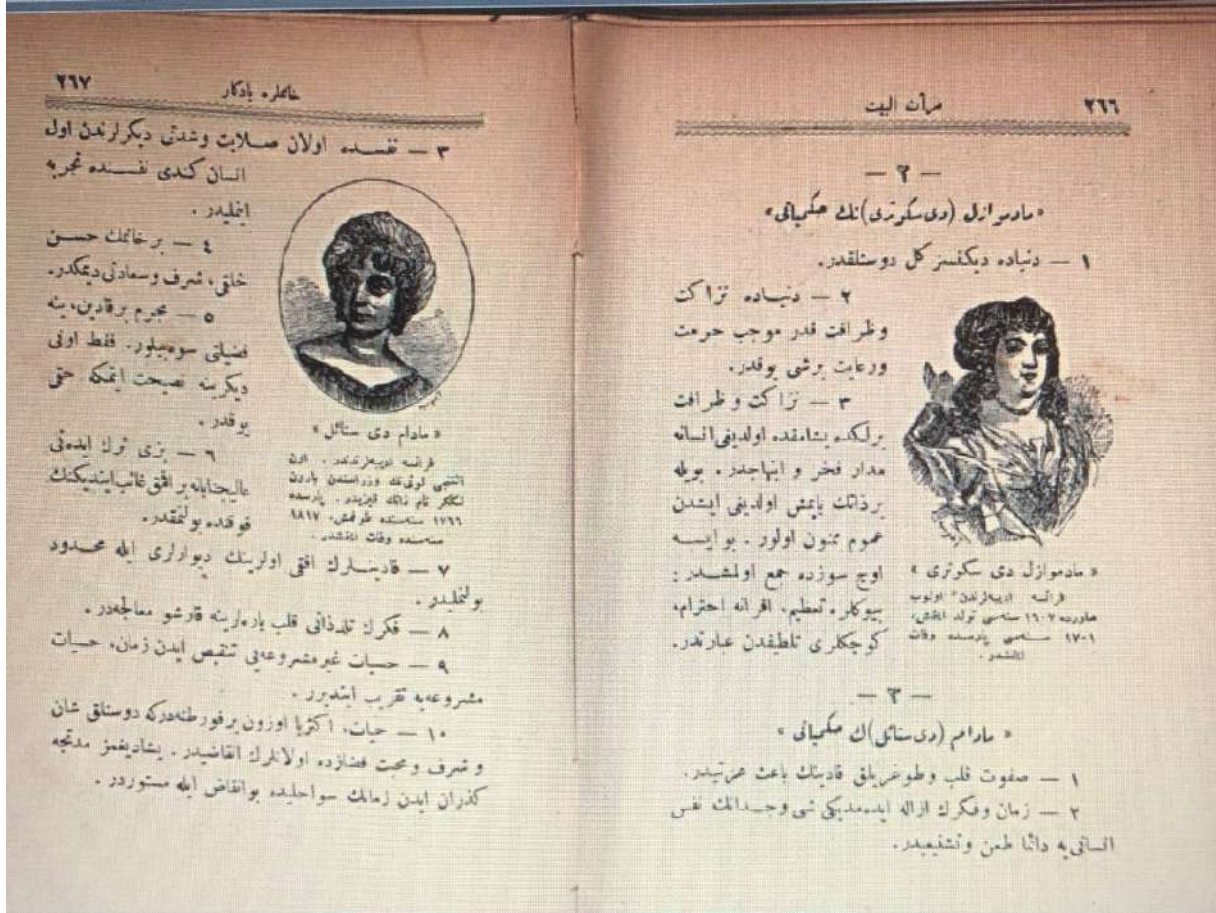 ٢٦٦
مرأت البيت
— ٢ —
« مادموازل (دی سكوتری)نك حكمياتی »
١ — دنياده ديكنسز كل دوستلقدر.
٢ — دنيـاده نزاكت
وظرافت قدر موجب حرمت
ورعايت برشی يوقدر.
٣ — نزاكت و ظرافت
برلكده يشامقده اولديغی انسانه
مدار فخر و ابتهاجدر. بويله
برذاتك يايمش اولديغی ايشدن
عموم ممنون اولور . بو ايسـه
اوچ سوزده جمع اولمشـدر :
بيوكلره تعظيم، اقرانه احترام،
كوچكلری تلطيفدن عبارتدر.
« مادموازل دی سكوتری »
فرانسه اديبه‌لرندن اولوب
هاورده ١٦٠٧ سنه‌سی تولد ايتمش،
١٧٠١ سنـه‌سی پارسده وفات
ايتمشدر .
— ٣ —
« مادام (دی ستائل)ك حكمياتی »
١ — صفوت قلب وطوغريلق قادينك باعث عزتيدر.
٢ — زمان وفكرك ازاله ايده‌مديكی شی وجـدانك نفس
انسانی‌يه دائما طعن وتشنيعيدر.
٢٦٧
خاطره يادكار
٣ — نفسـده اولان صـلابت وشدتی ديكرلرندن اول
انسان كندی نفسـنده تجربه
ايتمليدر .
٤ — بر خانمك حسـن
خلقی، شرف وسعادتی ديمكدر.
٥ — مجرم برقادين، ينه
فضيلتی سوه‌بيلور. فقط اونی
ديكرينه نصيحت ايتمكه حقی
يوقدر .
٦ — بزی ترك ايده‌نی
عاليجنابانه بر افق غائب ايتديكنك
فوقنده بولنمقدر.
« مادام دی ستائل »
فرانسه اديبه‌لرندندر . اون
التنجی لوئی‌نك وزراسندن بارون
نككر نام ذاتك قيزيدر . پارسده
١٧٦٦ سنه‌سنده طوغمش، ١٨١٧
سنه‌سنده وفات ايتمشدر .
٧ — قادينـلرك افقی اولرينك ديوارلری ايله محـدود
بولنمليدر .
٨ — فكرك تلذذاتی قلب ياره‌لرينه قارشو معالجه‌در .
٩ — حسيات غيرمشروعه‌يی تنقيص ايدن زمان، حسـيات
مشروعه‌يه تقريب ايتديرر .
١٠ — حيات، اكثريا اوزون برفورطنه‌دركه دوستلق شان
و شرف ومحبت قضازده اولانلرك انقاضيدر . يشاديغمز مدتجه
كذران ايدن زمانك سواحلیده بوانقاض ايله مستوردر .